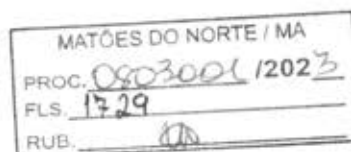 MATÕES DO NORTE / MA
PROC. 0803001 /2023
FLS. 1729
RUB.